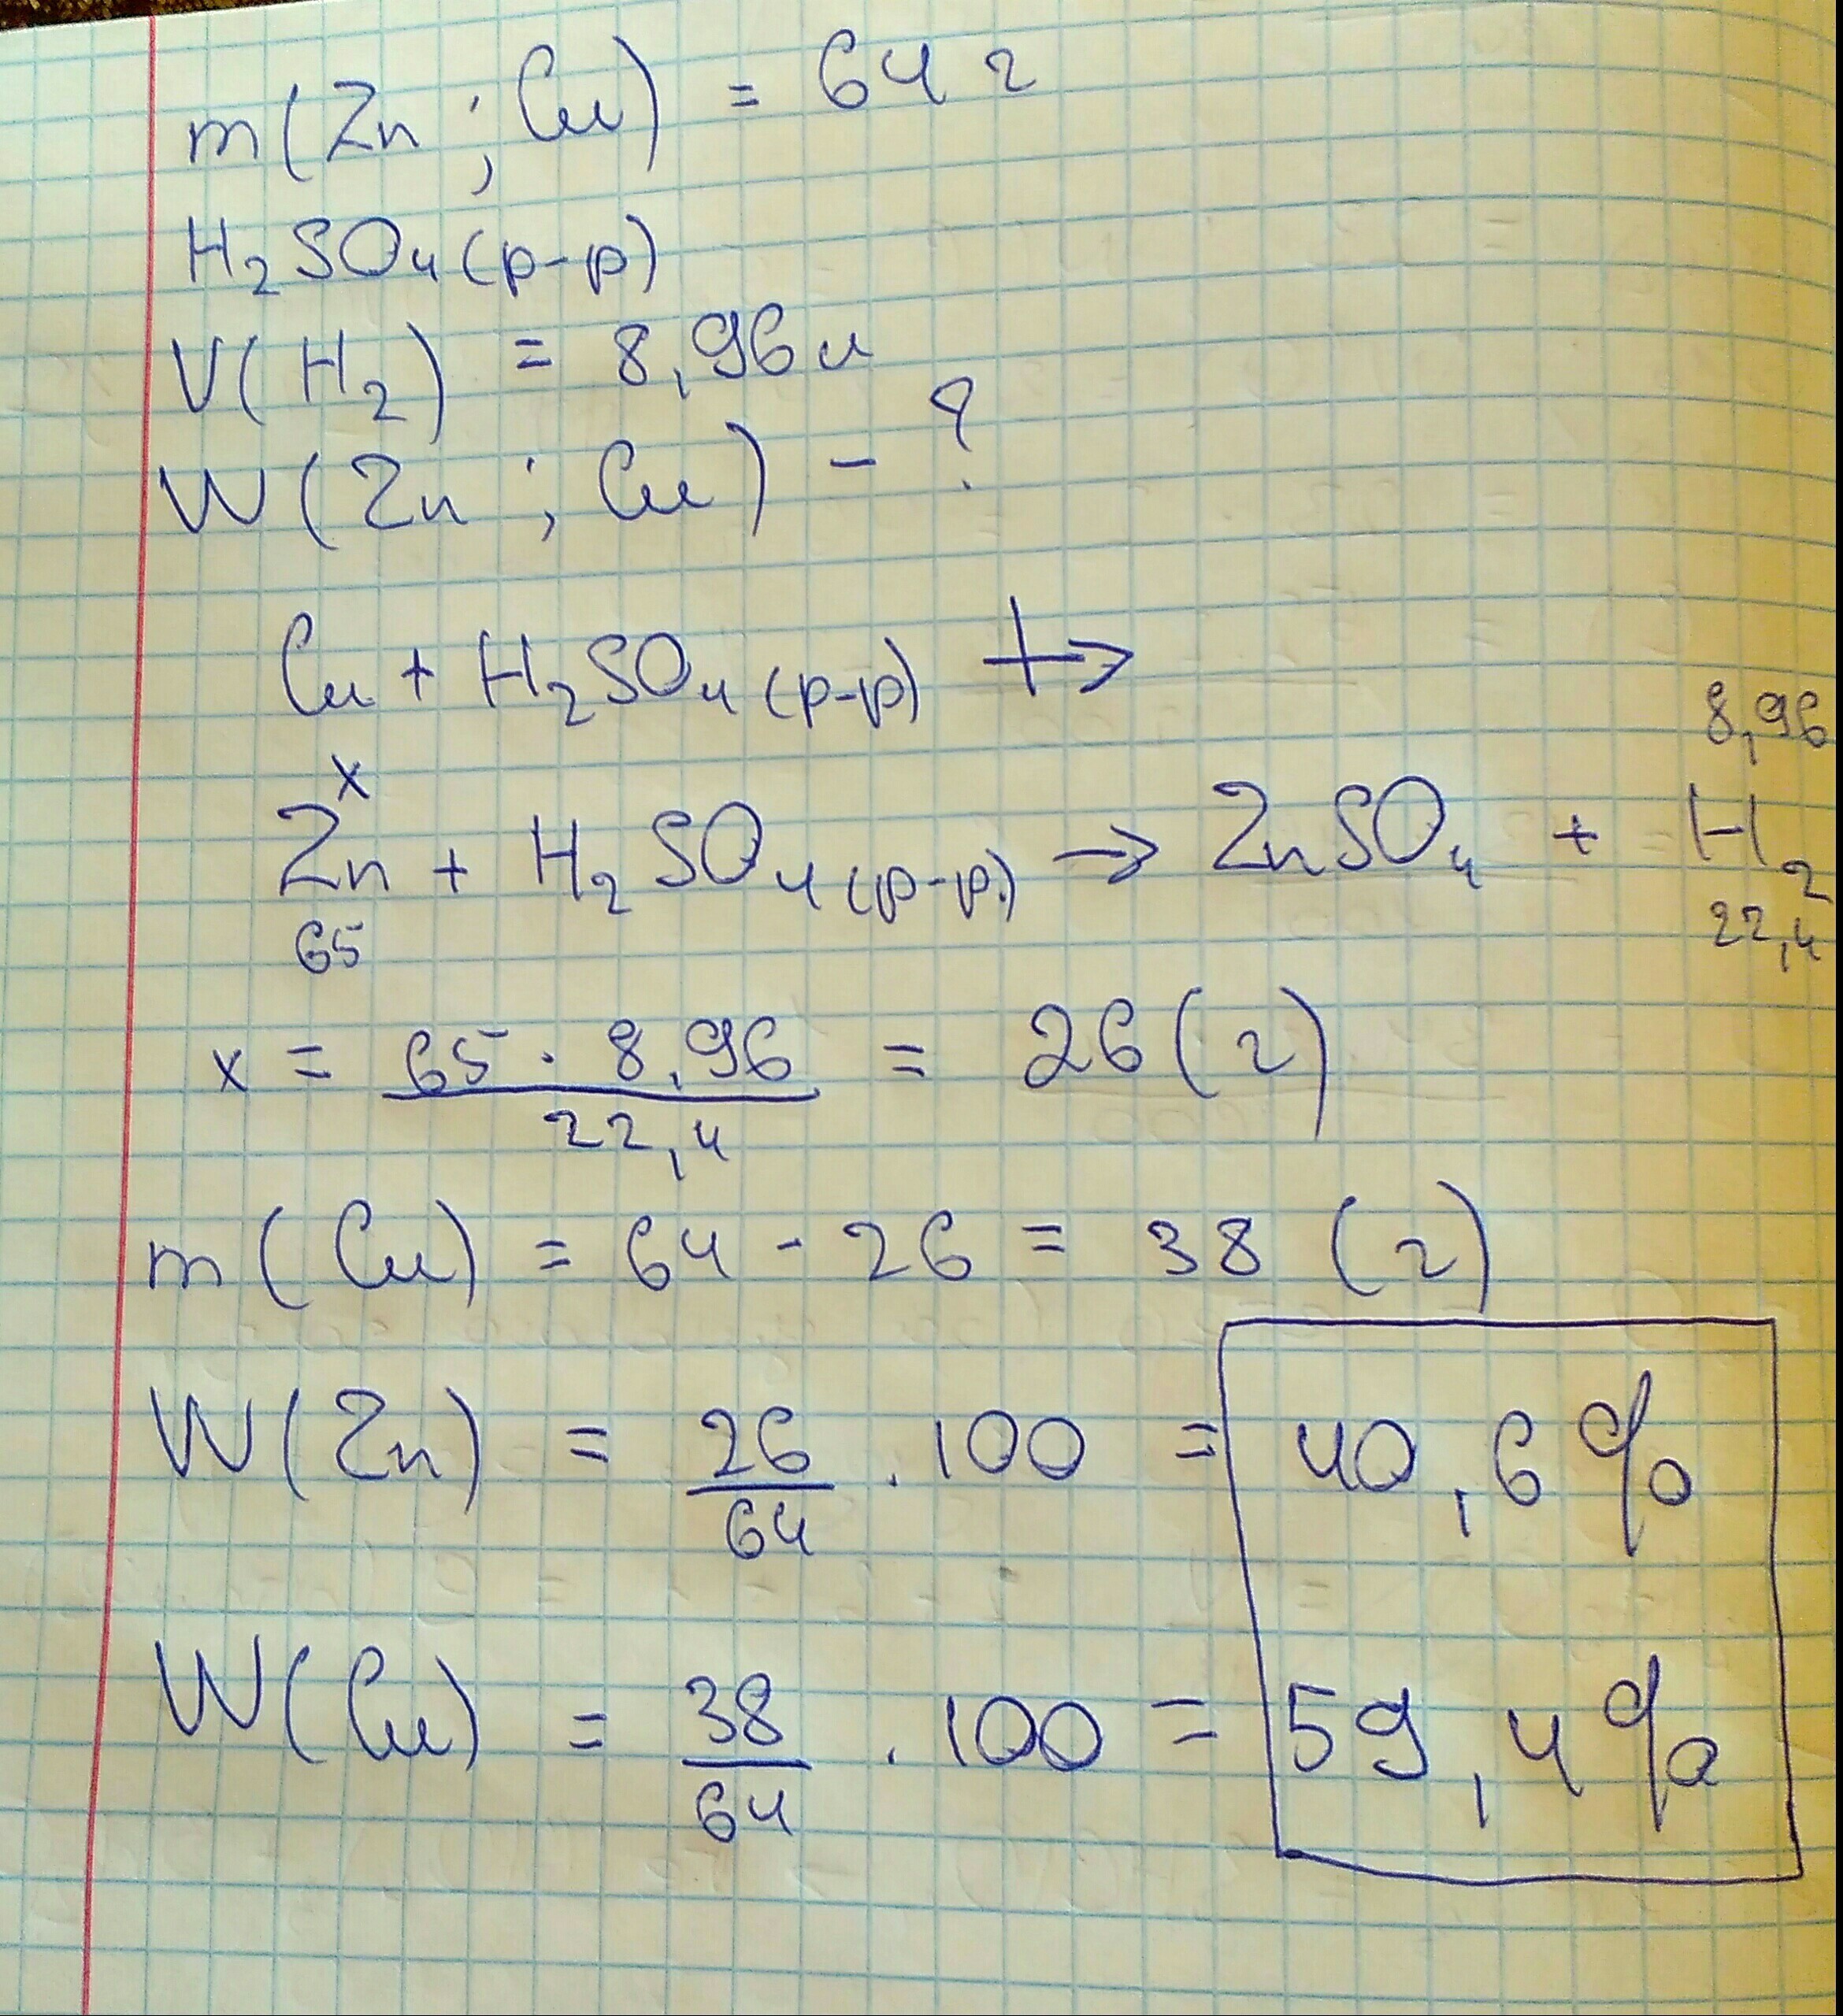 m(Zn ; Cu) = 64 г
H₂SO₄(р-р)
V(H₂) = 8,96 л
W(Zn ; Cu) - ?
Cu + H₂SO₄(р-р) ↛
x
8,96
Zn + H₂SO₄(р-р.) → ZnSO₄ + H₂
65
22,4
x = 65 · 8,96 / 22,4 = 26 (г)
m(Cu) = 64 - 26 = 38 (г)
W(Zn) = 26/64 · 100 = 40,6 %
W(Cu) = 38/64 · 100 = 59,4 %